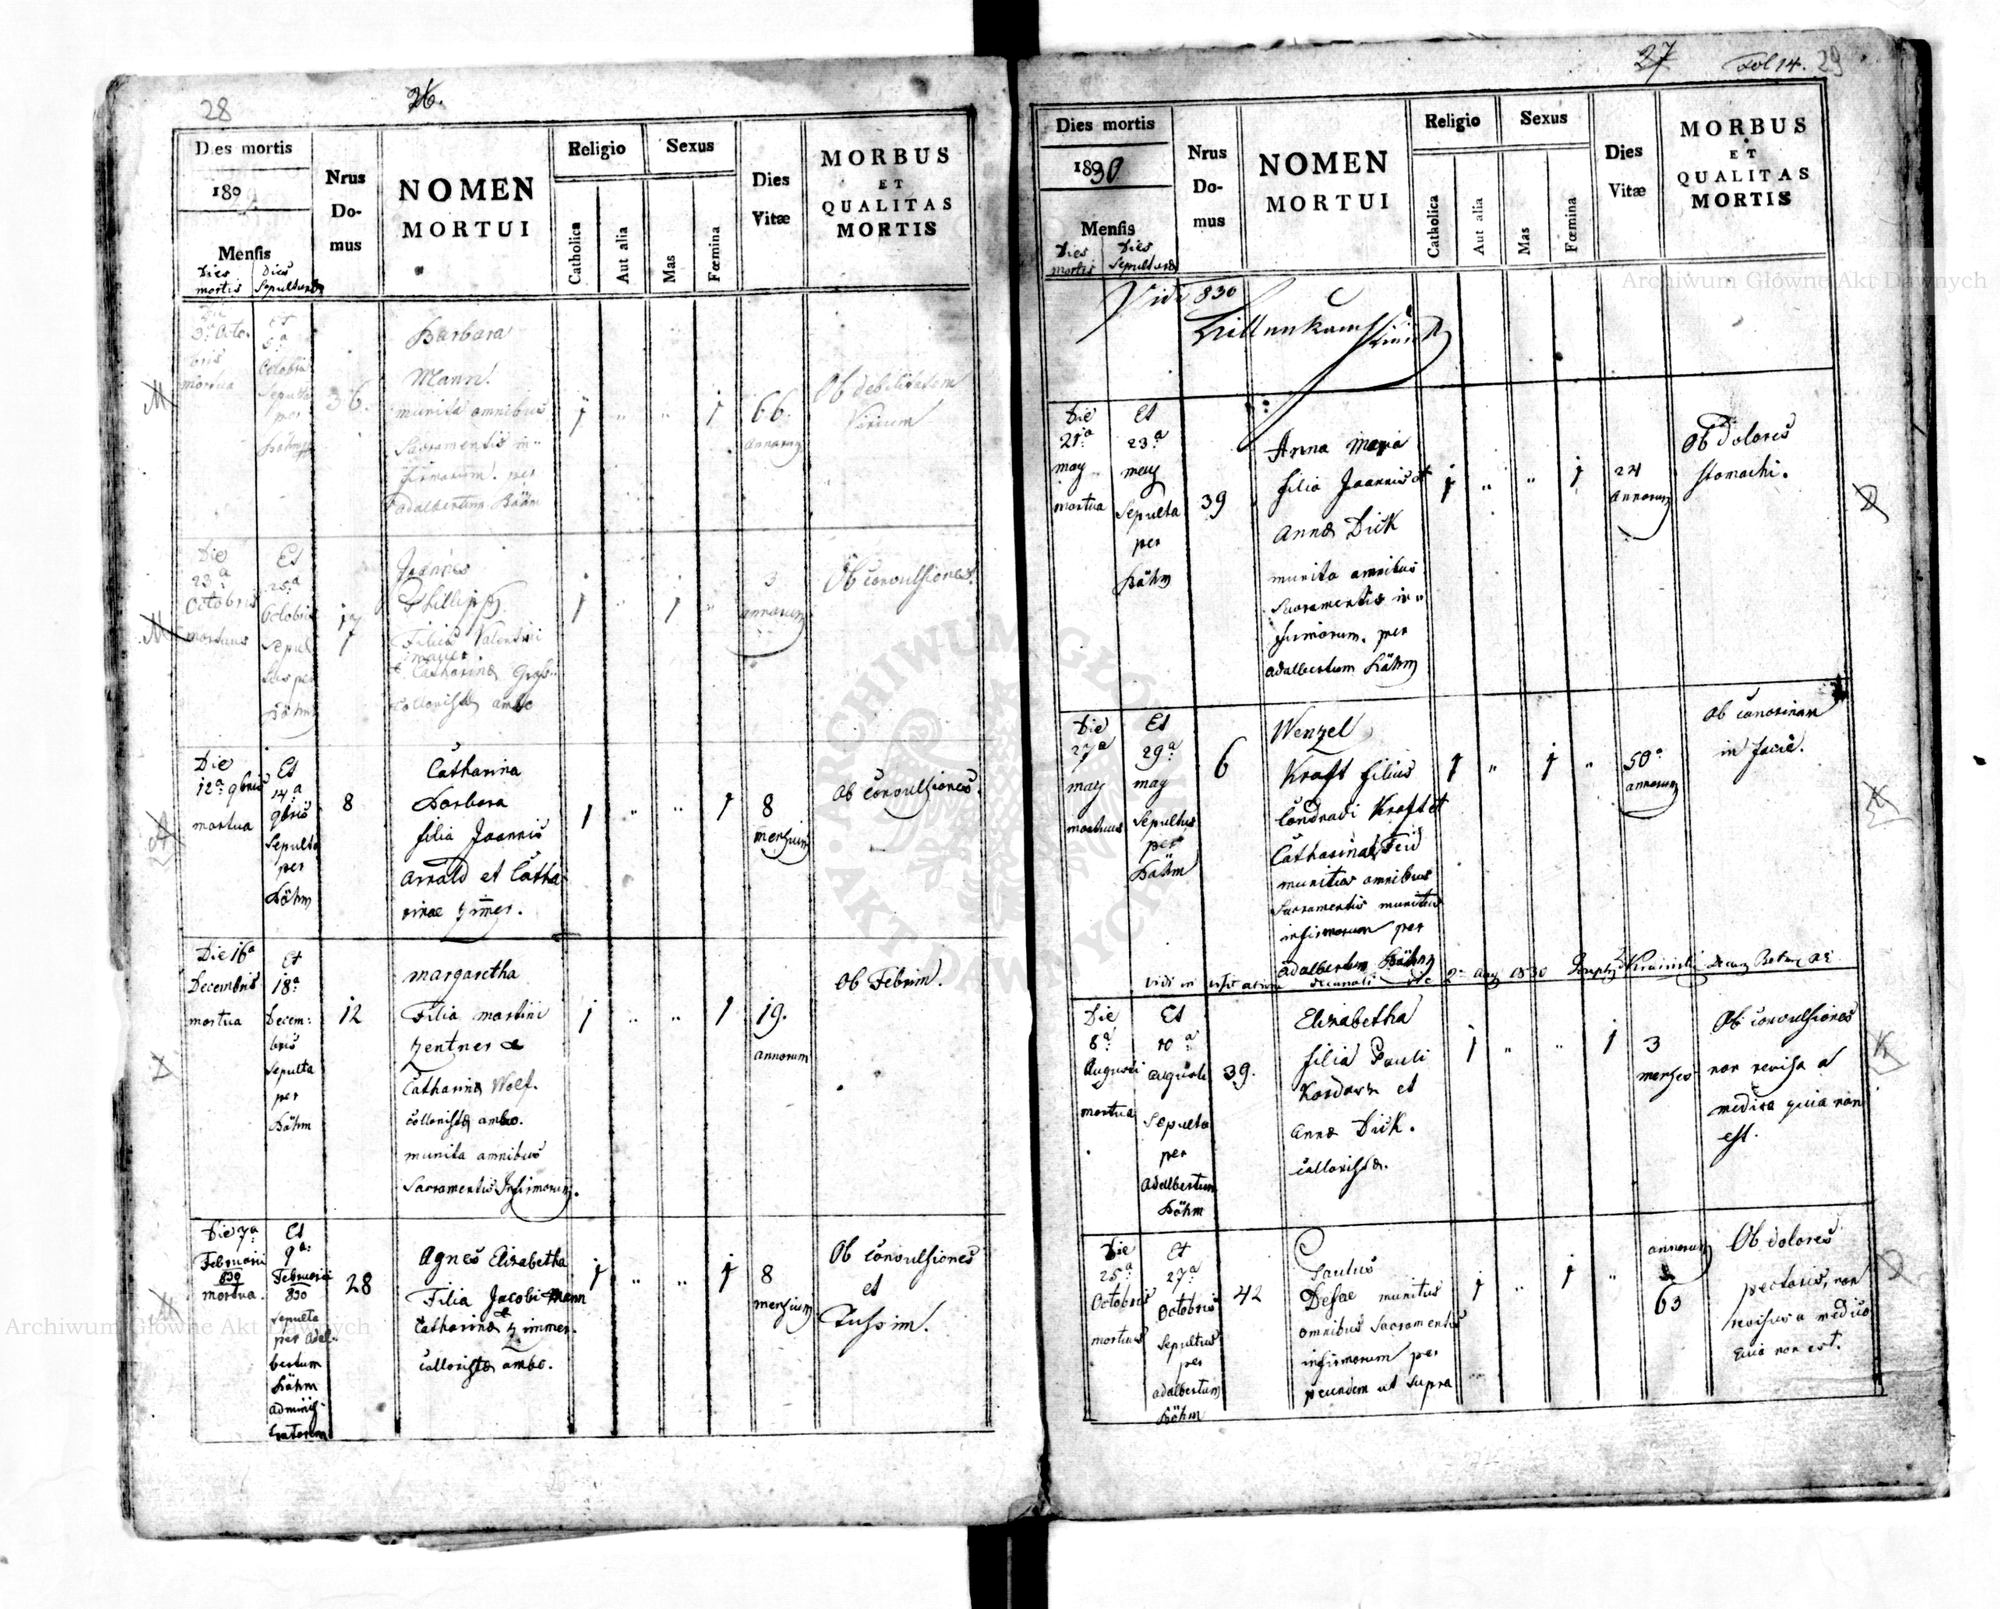 28
26.
Dies mortis
180
Mensis
Dies mortis
Dies Sepulturæ
Nrus Do-mus
NOMEN
MORTUI
Religio
Catholica
Aut alia
Sexus
Mas
Fœmina
Dies Vitæ
MORBUS
ET
QUALITAS
MORTIS
3. Octo-
bris
mortua
Et
5.a
Octobris
Sepulta
per
Böhm
36.
Barbara
Mann.
munita omnibus
Sacramentis in-
firmorum. per
adalbertum Böhm
1
"
"
1
66.
annorum
Ob debilitatem
Virium
Die
23.a
Octobris
mortuus
Et
25.a
Octobris
Sepul
tus per
Böhm
17
Joannes
Phillipp.
Filius Valentini
Mauer
et Catharina
collonistæ ambo
1
"
1
"
3
annorum
Ob convulsiones.
Die
12.a 9bris
mortua
Et
14.a
9bris
Sepulta
per
Böhm
8
Catharina
Barbara
filia Joannis
Arnald et Catha
rinae Zimer.
1
"
"
1
8
mensium
Ob convulsiones.
Die 16.a
Decembris
mortua
Et
18.a
Decem:
bris
Sepulta
per
Böhm
12
Margaretha
Filia Martini
Zentner &
Catharinæ Wolf.
collonistæ ambo.
munita omnibus
Sacramentis Infirmorum.
1
"
"
1
19.
annorum
Ob Febrim.
Die 7.a
Februarii
830
mortua.
Et
9.a
Februarii
830
Sepulta
per Adal-
bertum
Böhm
adminis-
tratorem
28
Agnes Elisabetha
Filia Jacobi Mann
et
Catharinæ Zimmer.
collonistæ ambo.
1
"
"
1
8
mensium
Ob convulsiones
et
Tussim.
27
Fol 14.
29
Dies mortis
1830
Mensis
Dies mortis
Dies Sepulturæ
Nrus Do-mus
NOMEN
MORTUI
Religio
Catholica
Aut alia
Sexus
Mas
Fœmina
Dies Vitæ
MORBUS
ET
QUALITAS
MORTIS
Vidi 830
Die
21.a
may
mortua
Et
23.a
may
Sepulta
per
Böhm
39
Anna Maria
filia Joannis et
Annæ Dick
munita omnibus
Sacramentis in-
firmorum. per
adalbertum Böhm
1
"
"
1
24
annorum
Ob Dolores
stomachi.
Die
27.a
may
mortuus
Et
29.a
may
Sepultus
per
Böhm
6
Wenzel
Kraft filius
Condradi Kraft et
Catharinæ Feid
munitus omnibus
Sacramentis munitus
infirmorum per
adalbertum Böhm
1
"
1
"
50.a
annorum
in facie.
Vidi in visitatione decanali die 2 Aug 1830 Joseph
Die
8.a
Augusti
mortua
Et
10.a
augusti
Sepulta
per
adalbertum
Böhm
39.
Elisabetha
filia Pauli
Kordarn et
Annæ Dick.
collonistæ.
1
"
"
1
3
menses
Ob convulsiones
non revisa a
medico quia non
est.
Die
25.a
Octobris
mortuus
Et
27.a
Octobris
Sepultus
per
adalbertum
Böhm
42
Paulus
Desae munitus
omnibus Sacramentis
infirmorum per
eundem ut supra
1
"
1
"
annorum
63
Ob dolores
pectoris, non
revisus a medico
quia non est.
Archiwum Główne Akt Dawnych
Archiwum Główne Akt Dawnych
ARCHIWUM GŁÓWNE • AKT DAWNYCH •